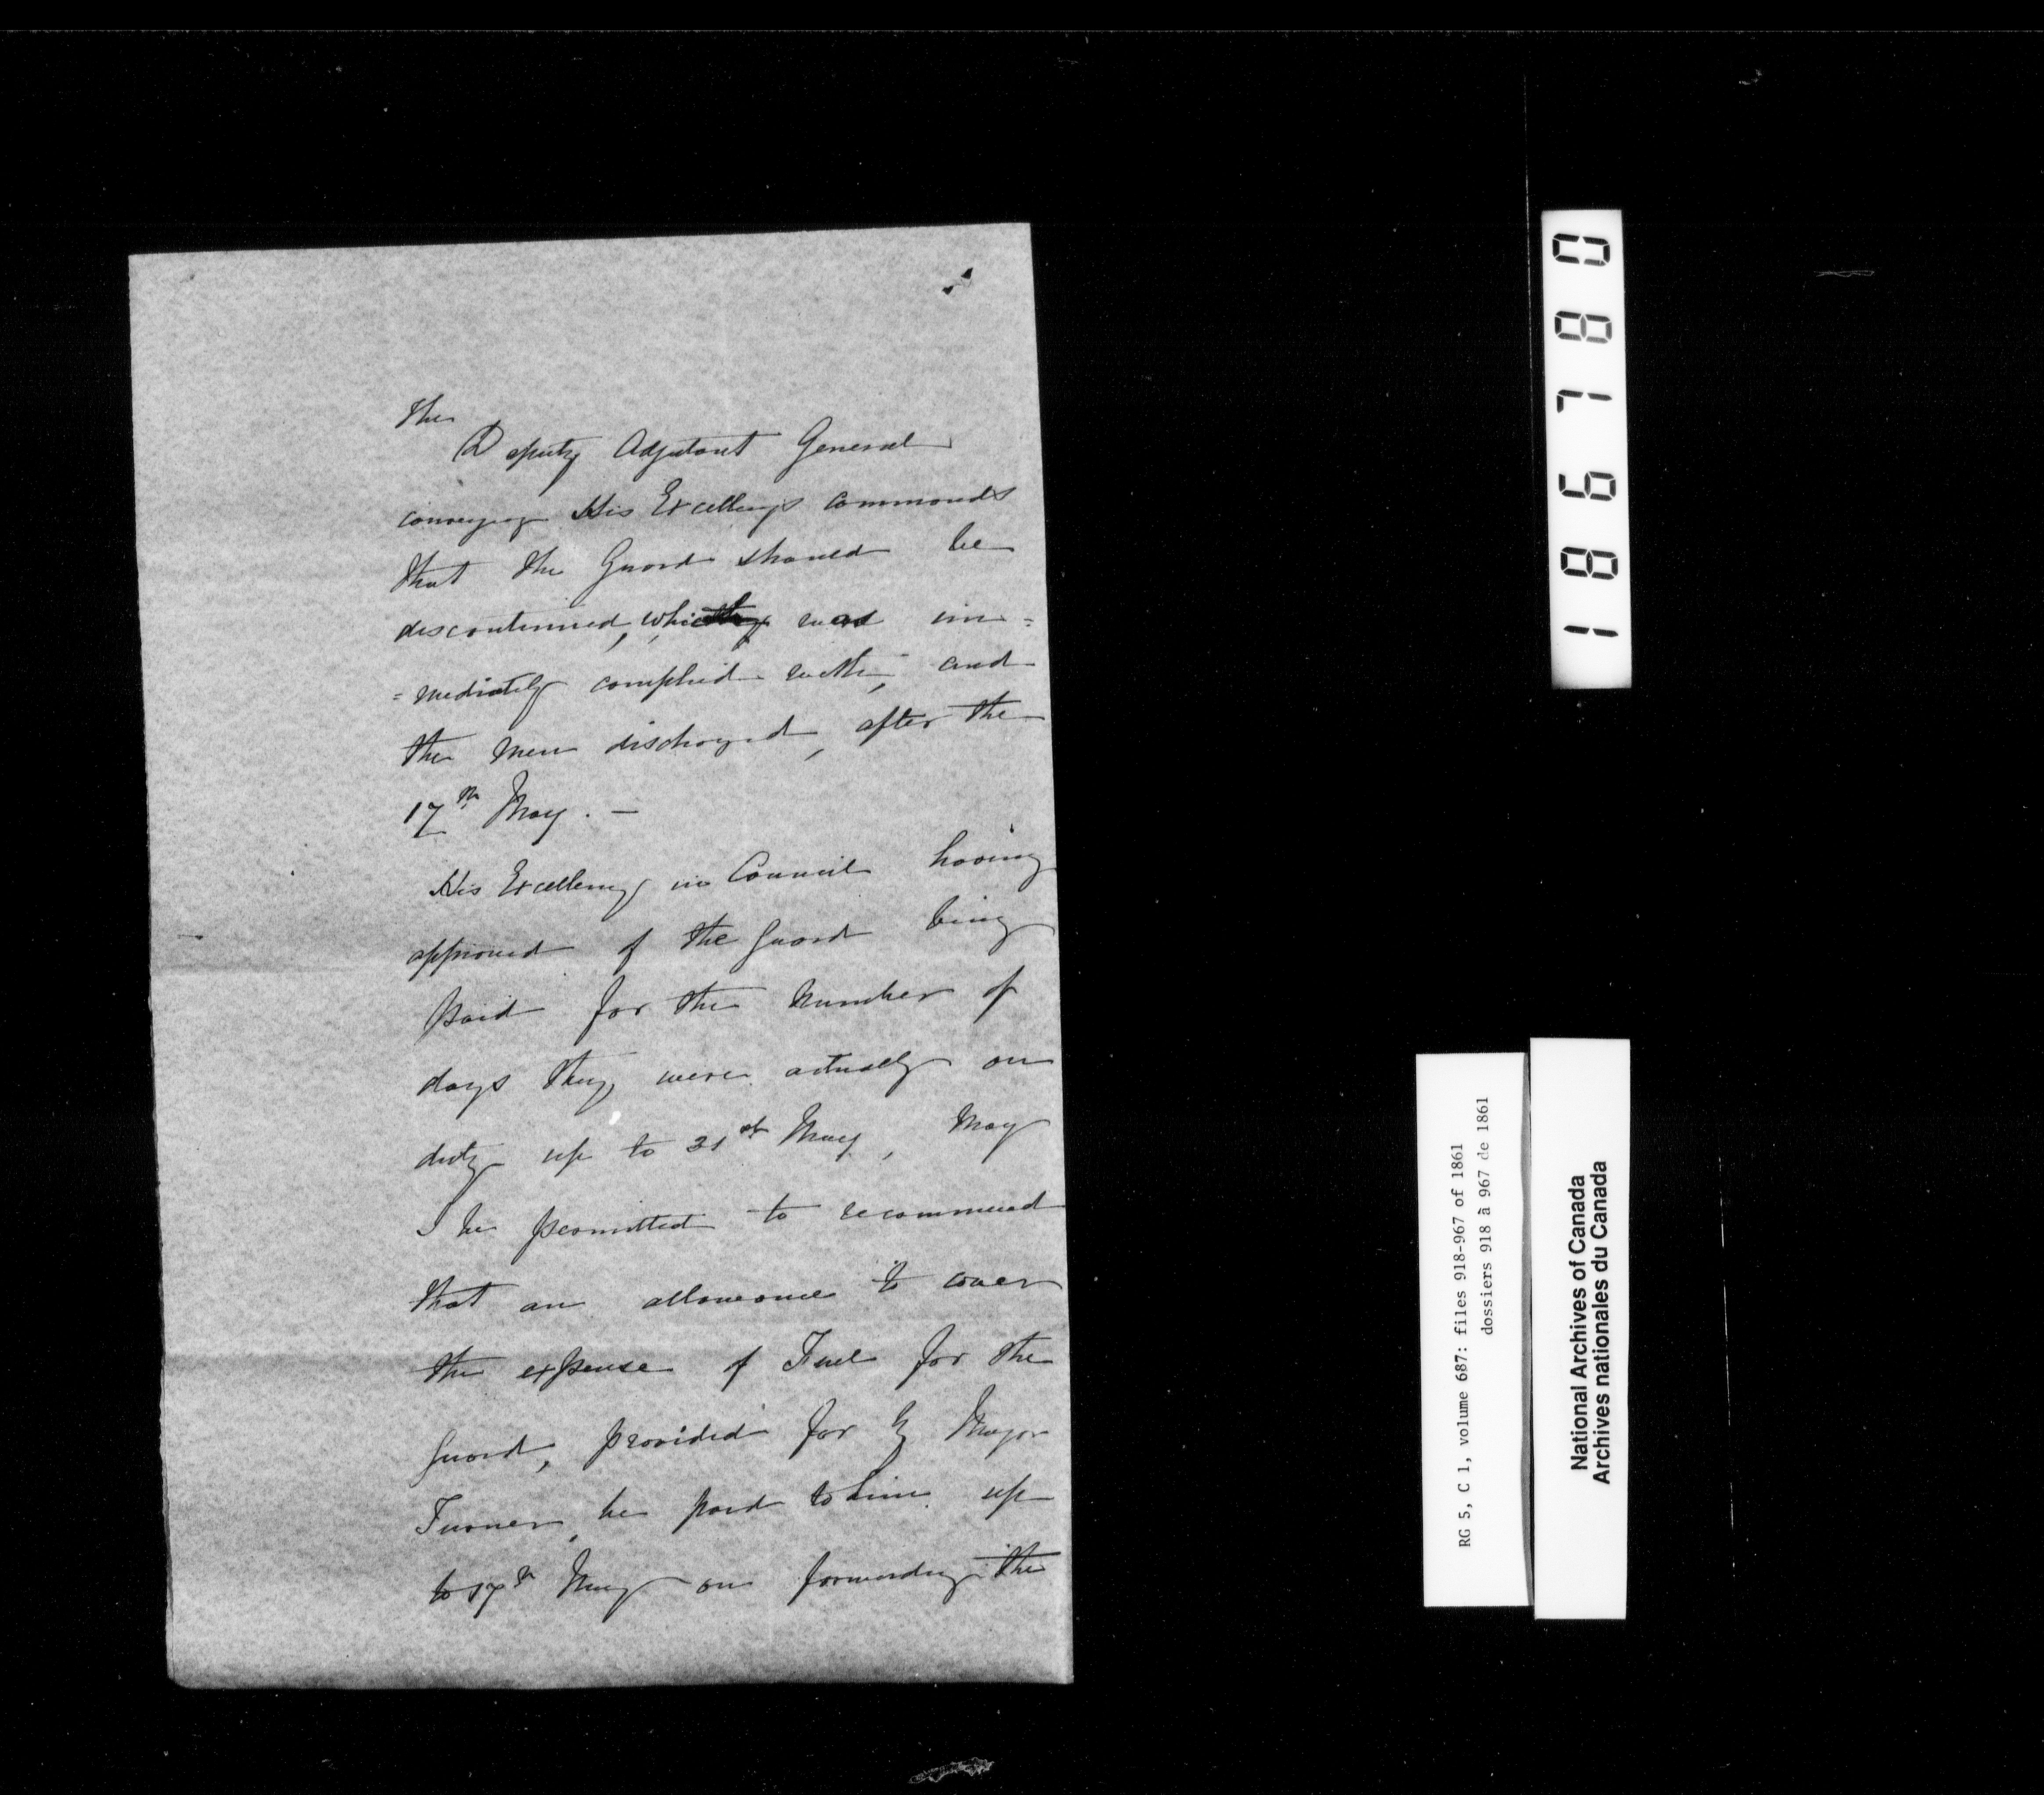 The
Deputy Adjutant General
conveying His Excellency's commands
that the Guard should be
discontinued, which was im=
=mediately complied with, and
the men discharged, after the
17th May. —
His Excellency in Council having
approved of the Guard being
paid for the number of
days they were actually on
duty up to 31st May, May
I be permitted to recommend
that an allowance to cover
the expense of Fuel for the
Guard, provided for by Major
Turner, be paid to him up
to 17th May on forwarding the
186780
RG 5, C 1, volume 687: files 918-967 of 1861
dossiers 918 à 967 de 1861
National Archives of Canada
Archives nationales du Canada